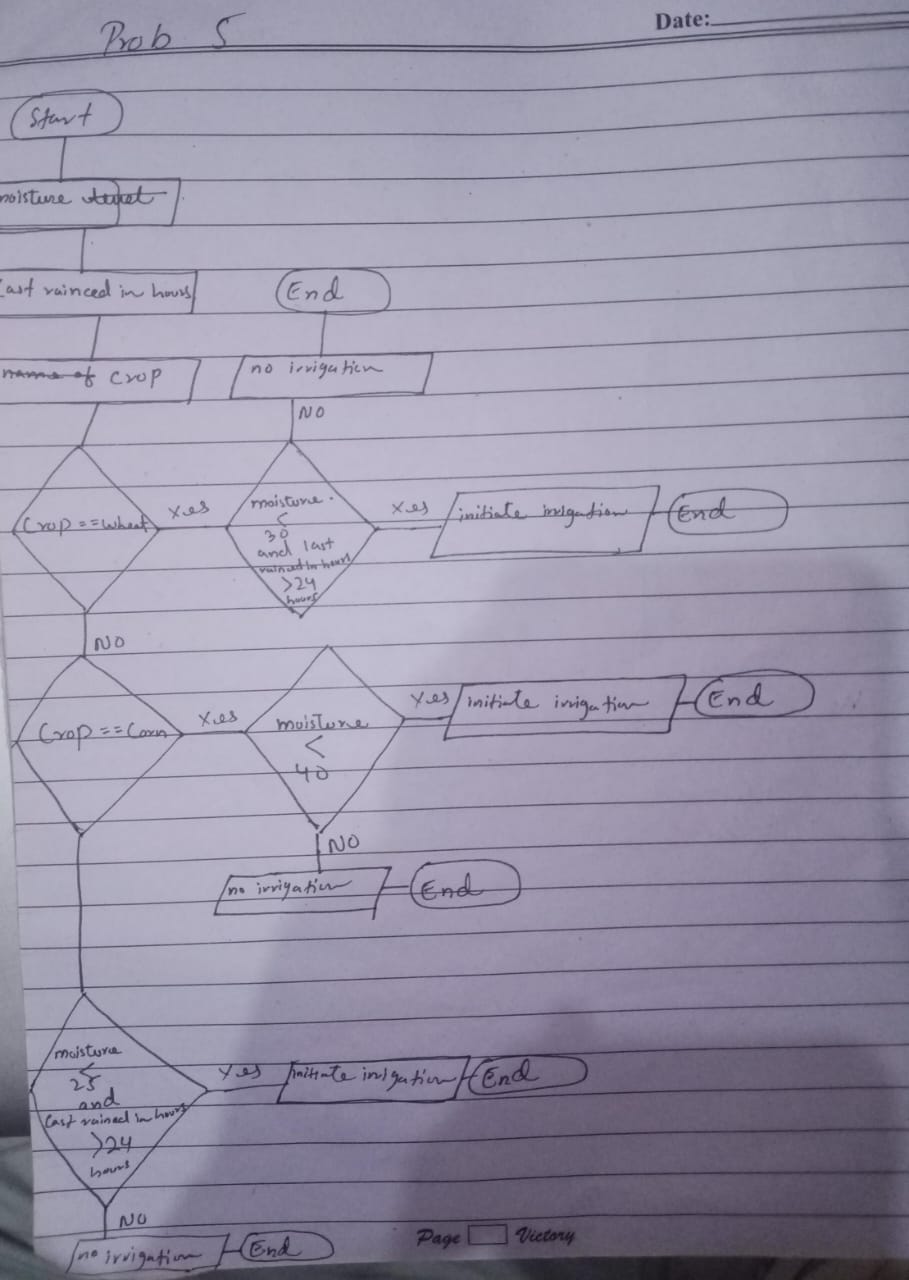 Prob 5
Date:
Start
moisture
Last rainced in hours
End
name of crop
no irrigation
NO
Crop==wheat
Yes
moisture.
<
30
and last
rained in hours
>24
hours
Yes
initiate irrigation
End
NO
Crop==Corn
Yes
moisture
<
40
Yes
initiate irrigation
End
NO
no irrigation
End
moisture
<
25
and
Last rained in hours
>24
hours
Yes
initiate irrigation
End
NO
no irrigation
End
Page Victory